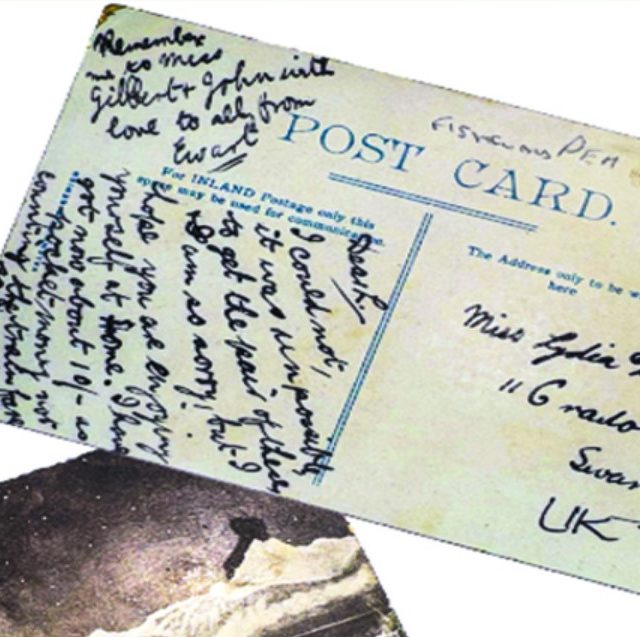 Remember
me to Miss
Gilbert & John with
love to all, from
Ewart
POST CARD.
For INLAND Postage only this
space may be used for communication.
The Address only to be
here
Miss Lydia
11 G
UK
I could not,
it was impossible
to get the pair of them
I am so sorry! but I
hope you are enjoying
yourself at Home. I have
got now about 10/- as
pocket-money not
counting the train fare